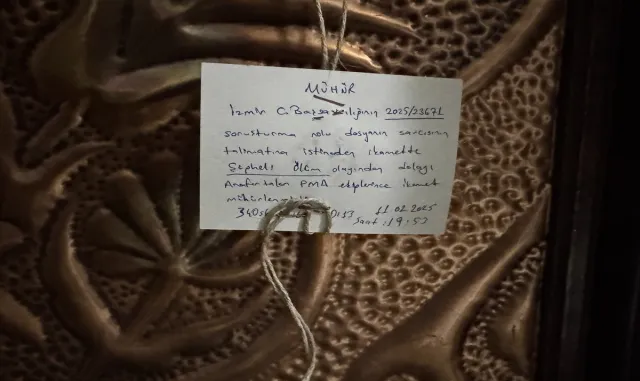 MÜHÜR
İzmir C. Başsavcılığının 2025/23671
soruşturma nolu dosyanın savcısının
talimatına istinaden ikamette
Şüpheli ölüm olayından dolayı
Anahtarları PMA ekiplerince ikamet
mühürlen
340 11.02.2025
Saat: 19:53